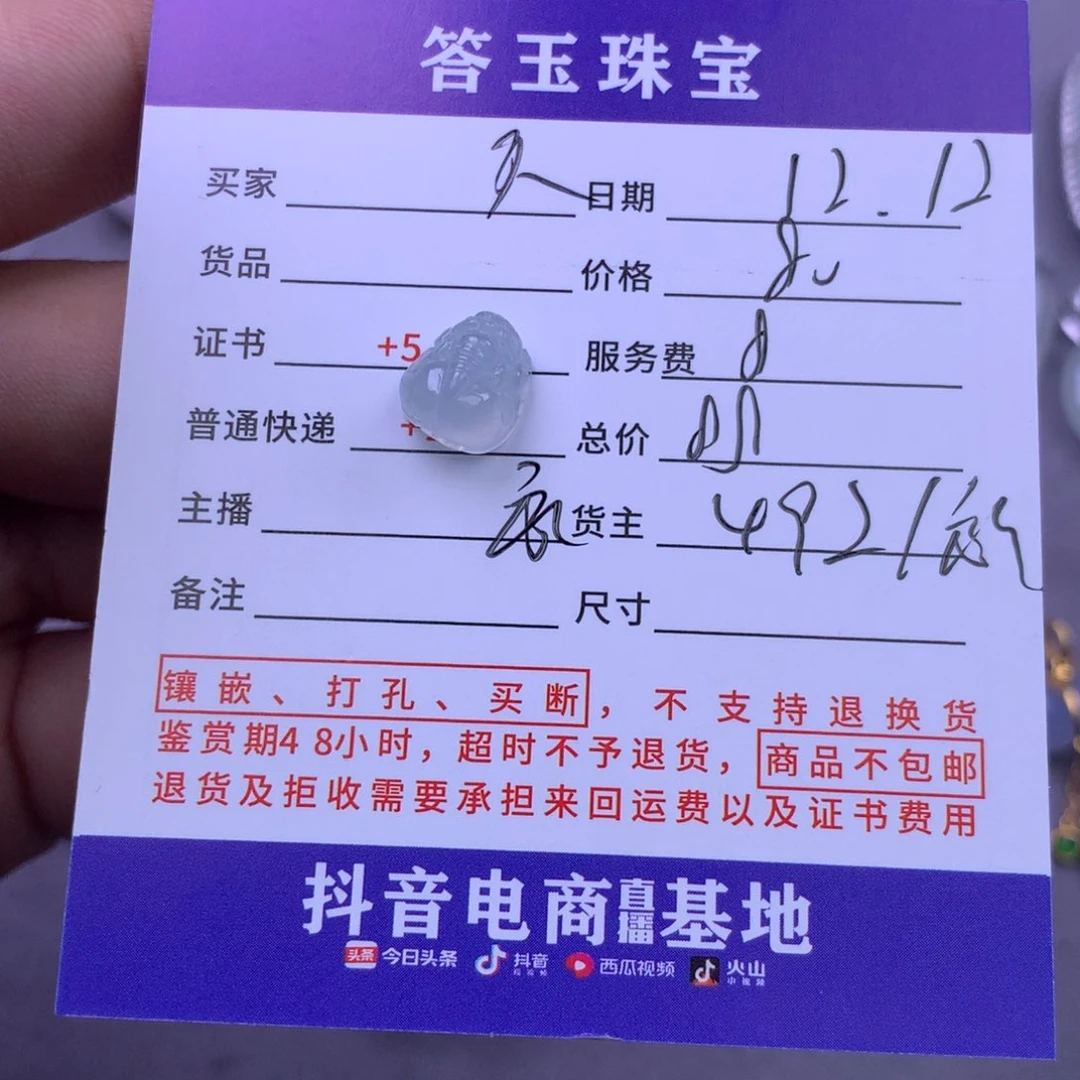 答玉珠宝
买家 日期 12.12
货品 价格 80
证书 +5 服务费 8
普通快递 + 总价
主播 货主 4921
备注 尺寸
镶嵌、打孔、买断，不支持退换货
鉴赏期48小时，超时不予退货，商品不包邮
退货及拒收需要承担来回运费以及证书费用
抖音电商直播基地
头条 今日头条 抖音 西瓜视频 火山